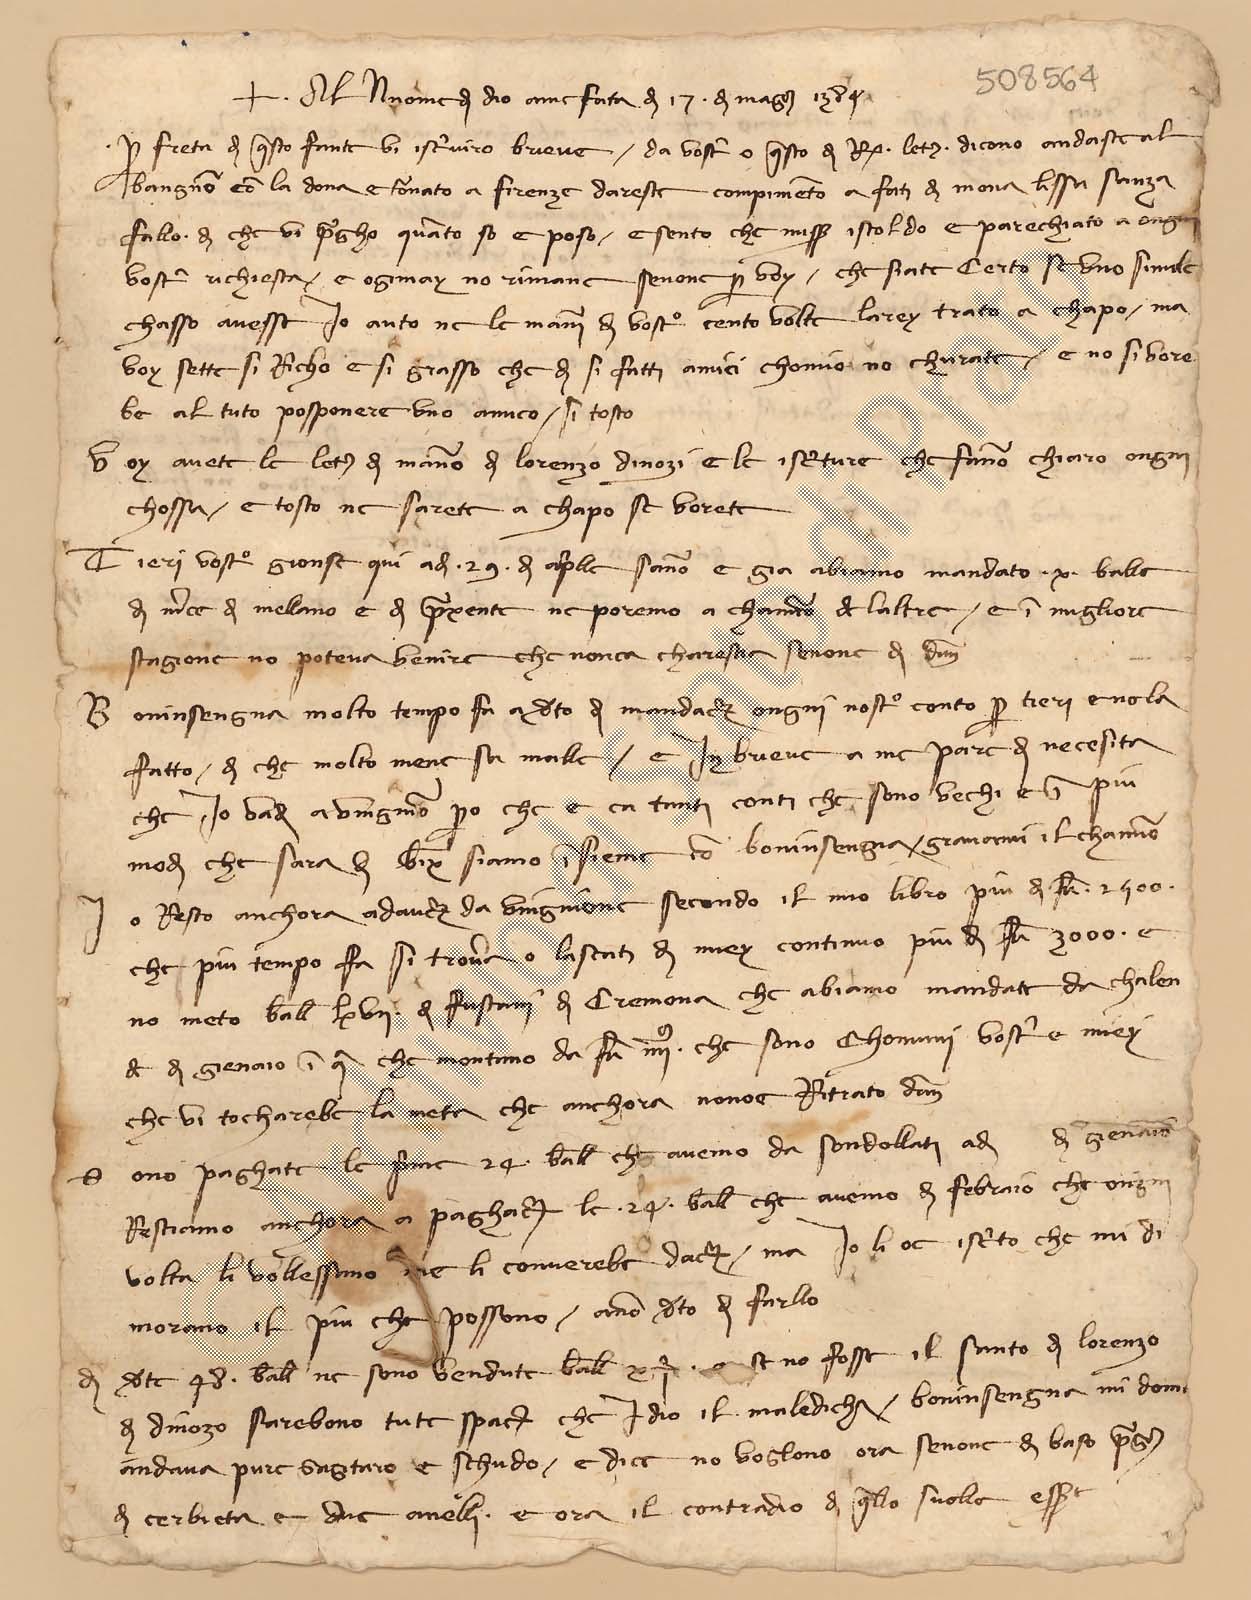 508564
+. Al Nnome di dio ame fata di 17. di magio 1384
. per freta di questo fante vi iscriviro brieve / da vostri o questo di Rº letera. dicono andaste al
bangnio con la dona e tornato a firenze dareste compimento a fati di mona lissa sanza
fallo. di che vi pregho quanto so e poso / e sento che misser istoldo e parechiato a ongni
vostra richiesta / e ogimay no rimane senone per voy / che siate Certo se uno simile
chasso avesse Io auto ne le mani di vostro cento volte larey trato a chapo / ma
voy sette si Richo e si grasso che di si fatti amici chomio no churate / e no si vore
be al tuto posponere uno amico / si tosto
Voy avete le letere di manno di lorenzo dinozi e le iscriture che fanno chiaro ongni
chossa / e tosto ne sarete a chapo se vorete
Tieri vostro gionse qui adi .29. di aprile sanno e gia abiamo mandato .x. balle
di merce di mellano e di prexente ne poremo a chamino de laltre / e in migliore
stagione no poteva venire che nonca charestia senone di danari
Boninsengna molto tempo fa a deto di mandare ongni nostro conto per tieri e nola
fatto / di che molto mene sa malle / e In brieve a me pare di necesita
che Io vada a vingnione pero che e ca tanti conti che sono vechi e in piu
modi che sara di bixongno siamo insieme con boninsengna / gravarmi il chamino
Io Resto anchora adavere da vingnione secondo il mio libro piu di fior. 2500.
che piu tempo fa si trova o lasciati di miey continuo piu di fior 3000. e
no meto balle lxvii. di fustani di Cremona che abiamo mandate da chalen
de di gienaio in qua che montano da fior iiiiº. che sono Chomuni vostri e miey
che vi tocharebe la meta che anchora nonoe Ritrato danari
Sono paghate le prime 24. balle che avemo da sondollati adi di gienaio
Restiamo anchora a paghare le .24. balle che avemo di febraio che ongni
volta li vollessimo me li converebe dare / ma Io li oe iscrito che mi di
morano il piu che possono / anno deto di farllo
di dete 48. balle ne sono vendute balle e se no fosse il santo di lorenzo
di dinozo sarebono tute spaciate che Idio il maledicha / boninsengna mi dom
andava pure sagitaro e schudo / e dice no voglono ora senone di baso pregio
di cerbieta e due anelli. e ora il contradio di quello suolle essere